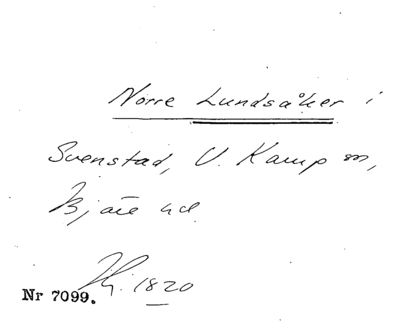 Norre Lundsåker i
Svenstad, V. Karup sn,
Bjäre hd
Hj. 1820
Nr 7099.